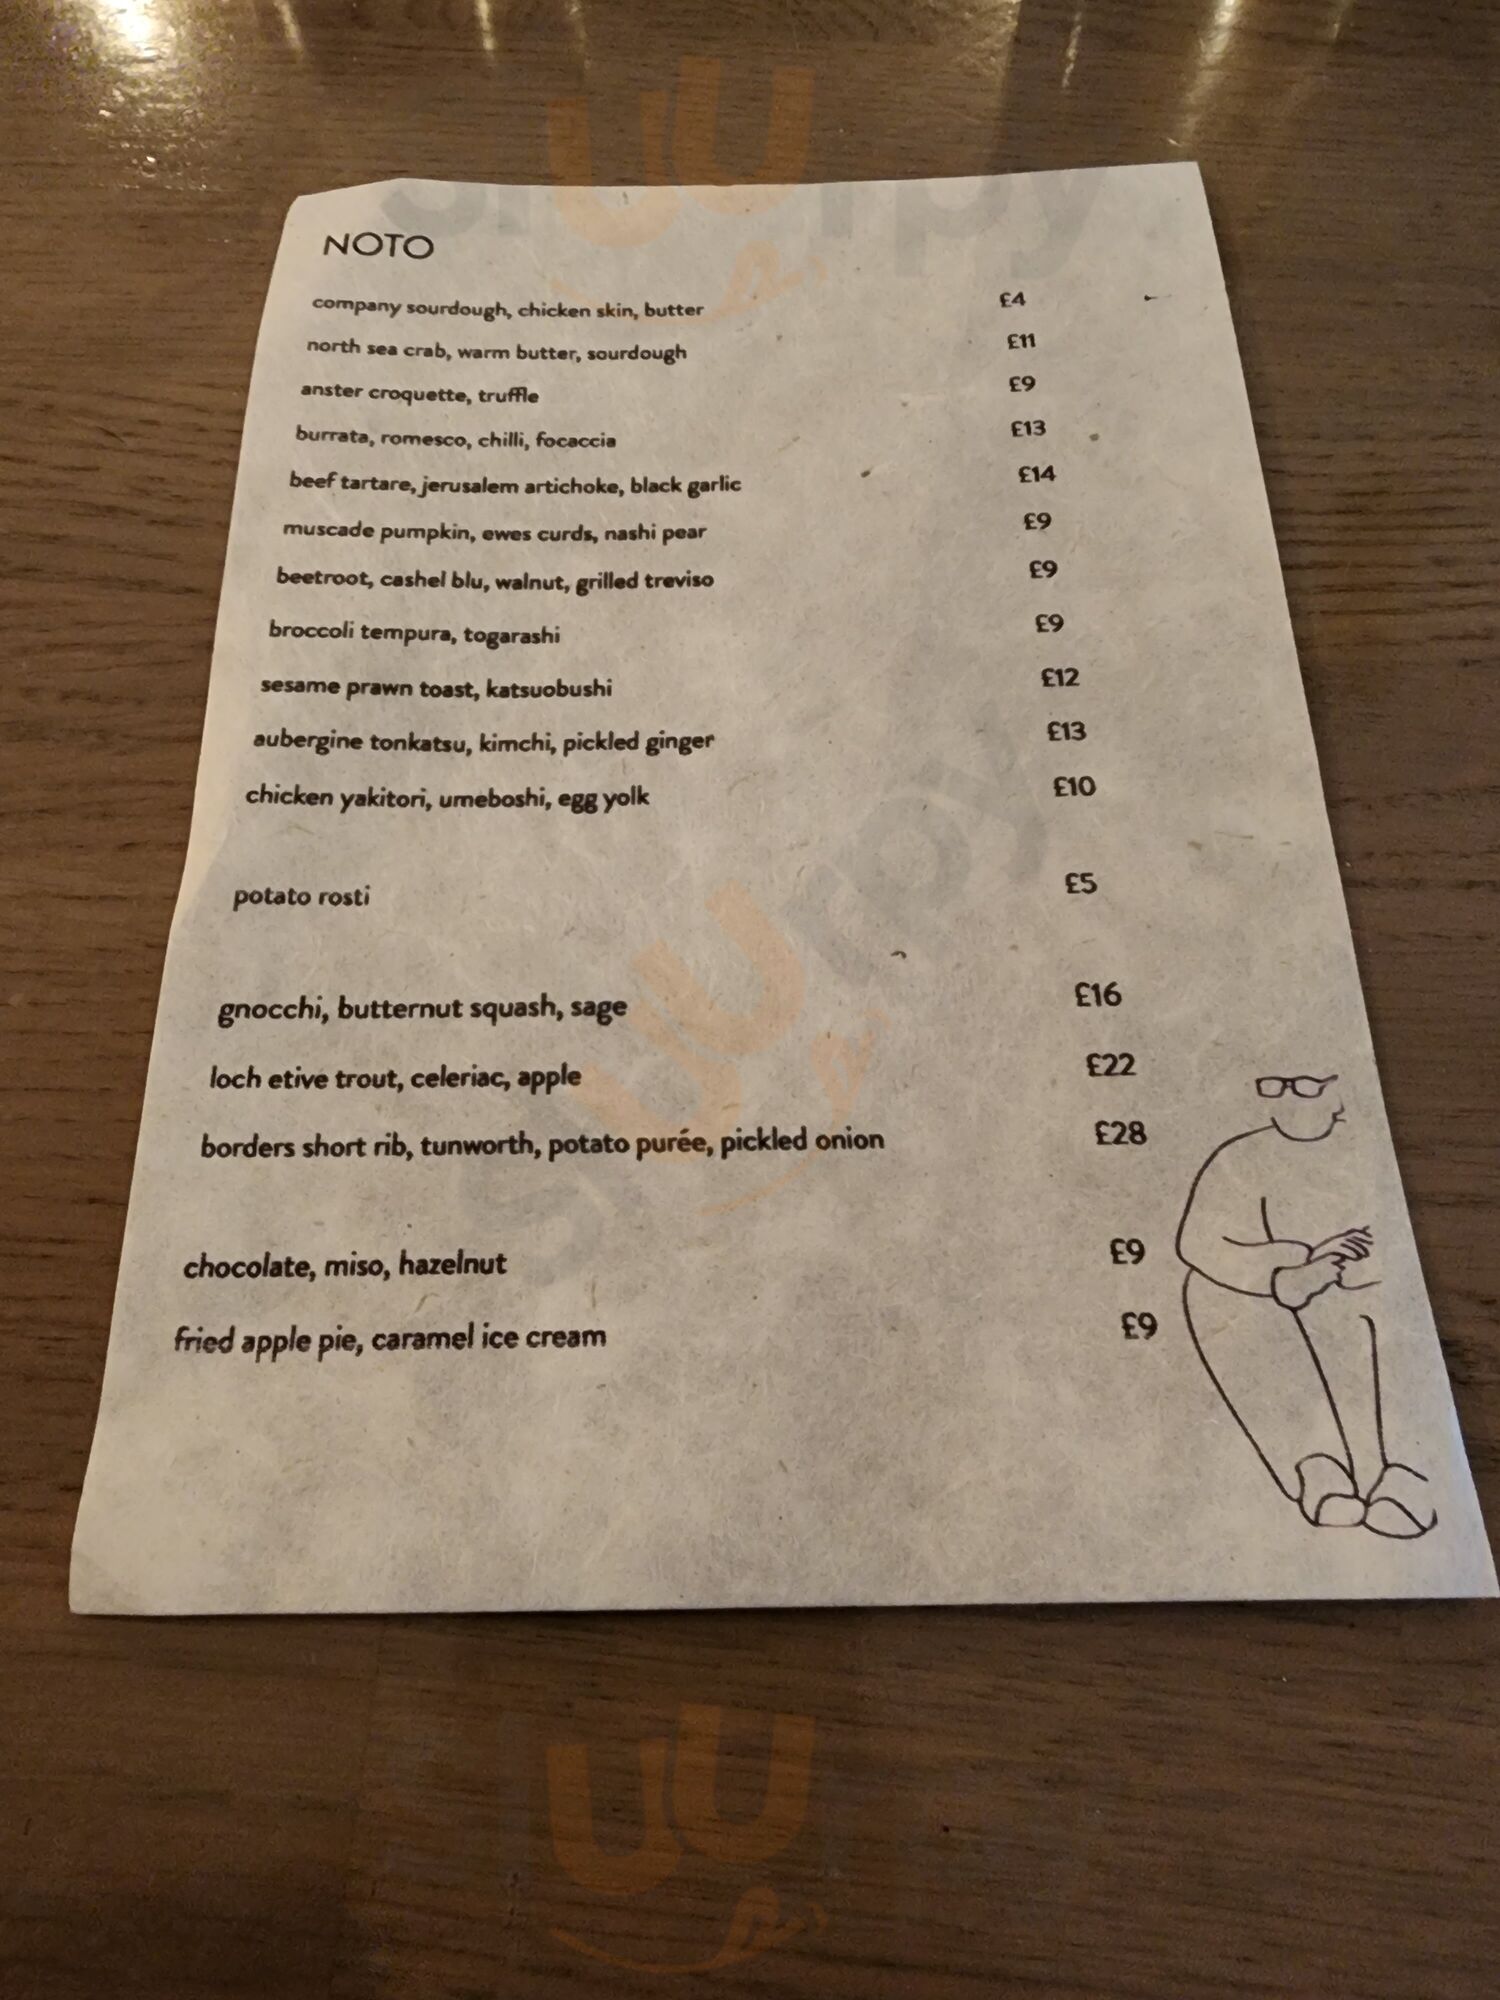 NOTO
company sourdough, chicken skin, butter £4
north sea crab, warm butter, sourdough £11
anster croquette, truffle £9
burrata, romesco, chilli, focaccia £13
beef tartare, jerusalem artichoke, black garlic £14
muscade pumpkin, ewes curds, nashi pear £9
beetroot, cashel blu, walnut, grilled treviso £9
broccoli tempura, togarashi £9
sesame prawn toast, katsuobushi £12
aubergine tonkatsu, kimchi, pickled ginger £13
chicken yakitori, umeboshi, egg yolk £10
potato rosti £5
gnocchi, butternut squash, sage £16
loch etive trout, celeriac, apple £22
borders short rib, tunworth, potato purée, pickled onion £28
chocolate, miso, hazelnut £9
fried apple pie, caramel ice cream £9
sluurpy
sluurpy